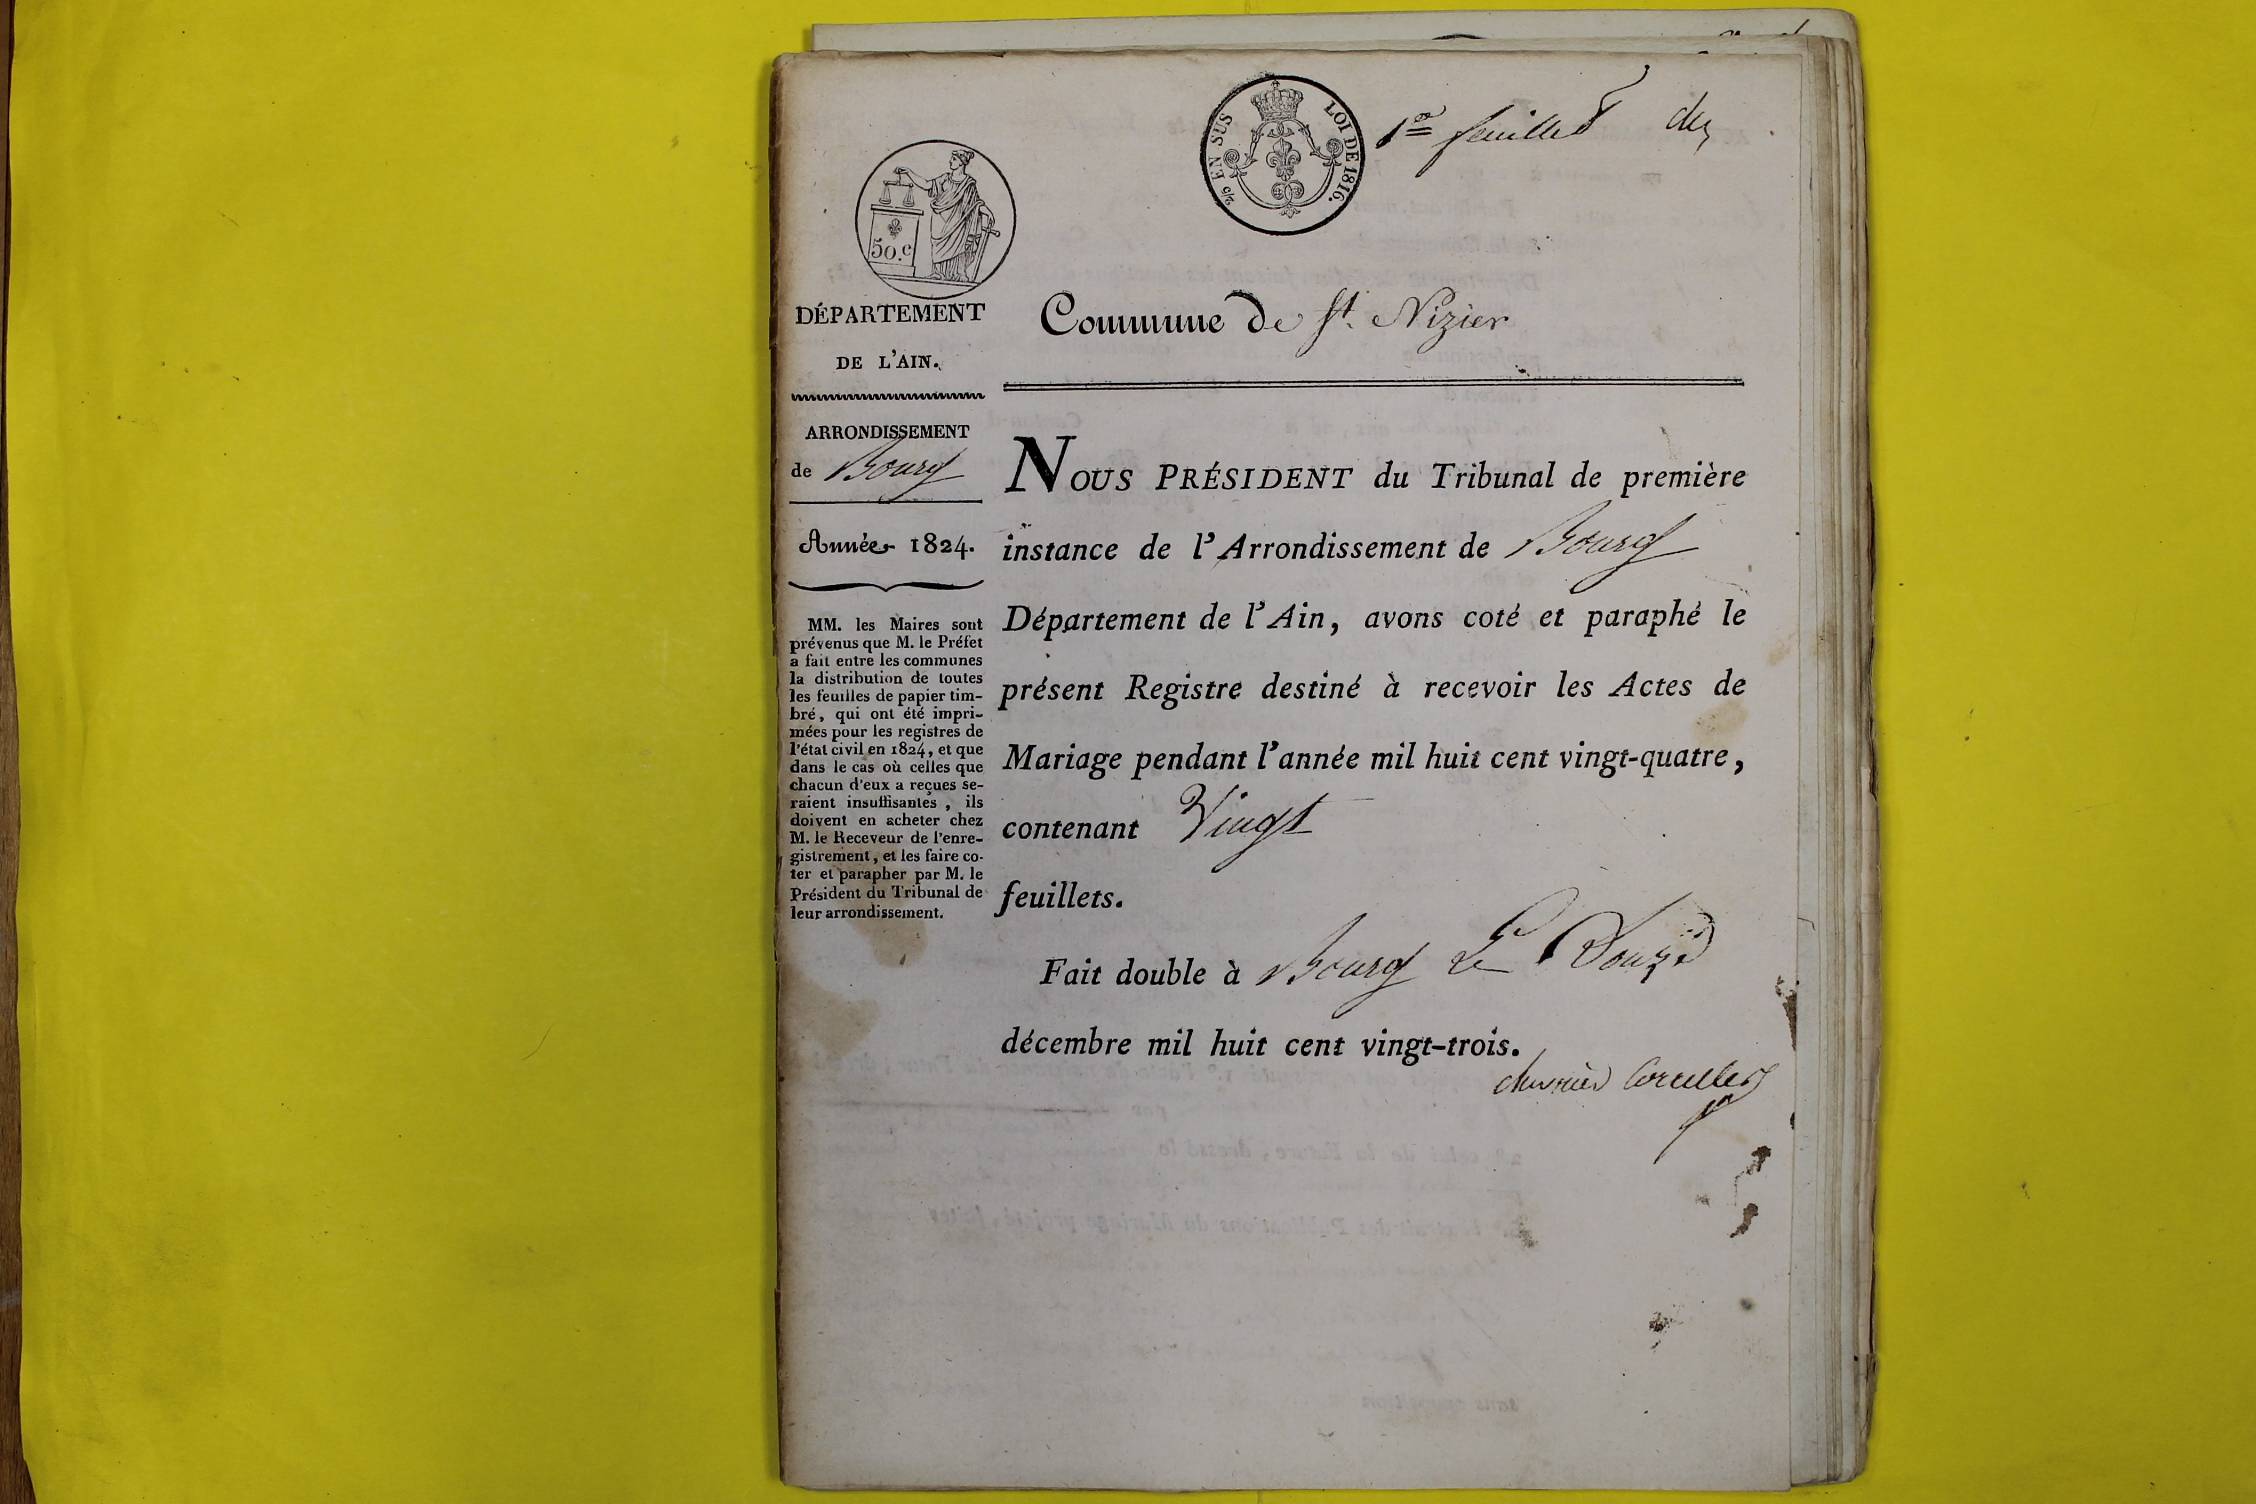 c/m EN SUS LOI DE 1816.
1er feuillet
50.c
DÉPARTEMENT
DE L'AIN.
ARRONDISSEMENT
de Bourg
Année 1824.
MM. les Maires sont
prévenus que M. le Préfet
a fait entre les communes
la distribution de toutes
les feuilles de papier tim-
bré, qui ont été impri-
mées pour les registres de
l'état civil en 1824, et que
dans le cas où celles que
chacun d'eux a reçues se-
raient insuffisantes, ils
doivent en acheter chez
M. le Receveur de l'enre-
gistrement, et les faire co-
ter et parapher par M. le
Président du Tribunal de
leur arrondissement.
Commune de St. Nizier
NOUS PRÉSIDENT du Tribunal de première
instance de l'Arrondissement de Bourg
Département de l'Ain, avons coté et paraphé le
présent Registre destiné à recevoir les Actes de
Mariage pendant l'année mil huit cent vingt-quatre,
contenant Vingt
feuillets.
Fait double à Bourg Le Douze
décembre mil huit cent vingt-trois.